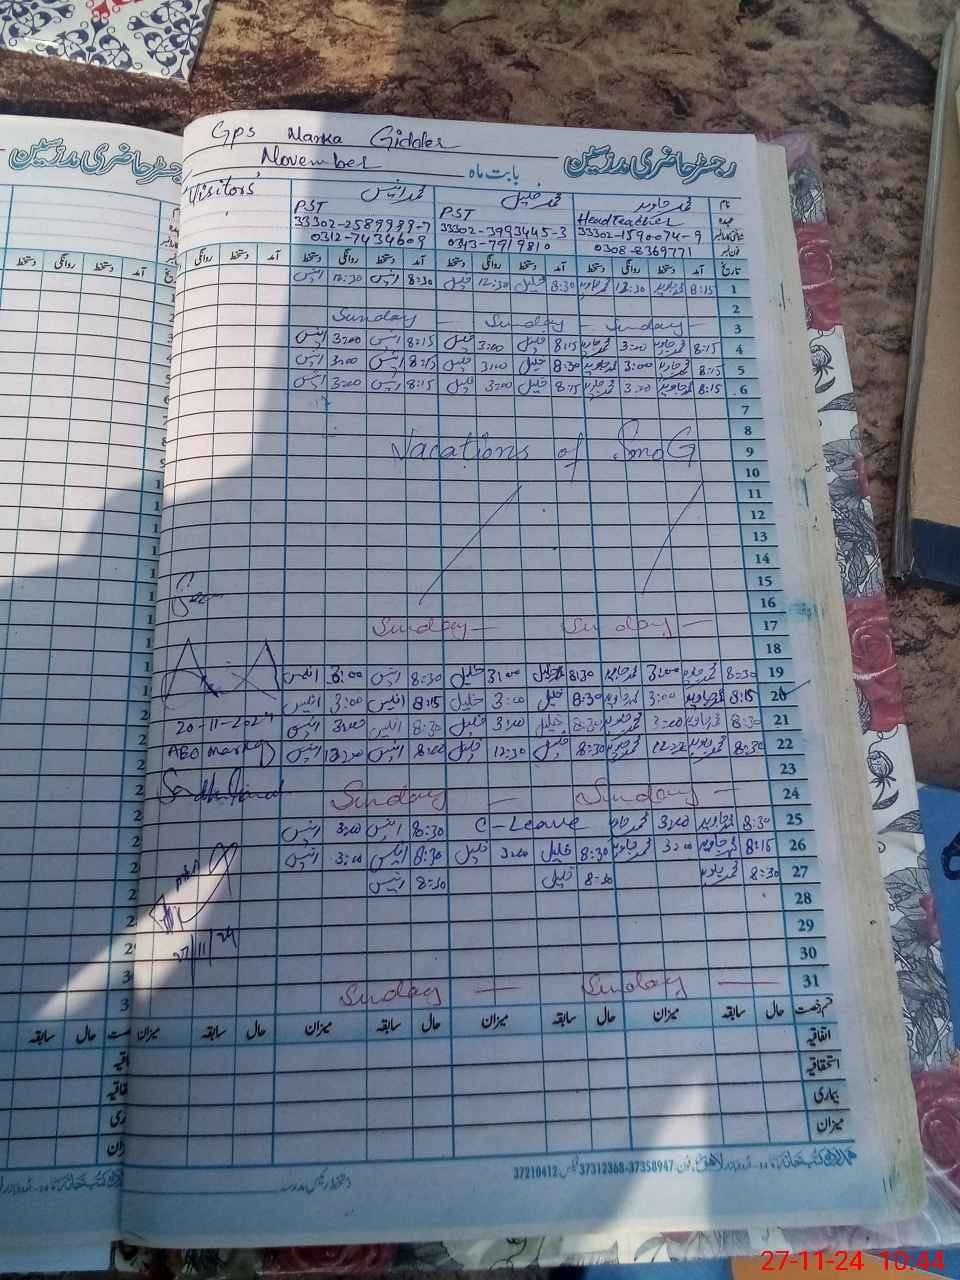 Gps Marka Gidder
رجسٹر حاضری مدرسین
بابت ماہ November
Visitors
نام محمد جاوید محمد خلیل محمد انیس
عہدہ Head Teacher PST PST
33302-1590074-9 33302-3993445-3 33302-2589989-7
0308-8369771 0343-7919810 0312-7434609
تاریخ آمد دستخط روانگی دستخط آمد دستخط روانگی دستخط آمد دستخط روانگی دستخط آمد دستخط روانگی
1 8:15 محمد جاوید 12:30 محمد جاوید 8:30 خلیل 12:30 خلیل 8:30 انیس 12:30 انیس
2
3 Sunday — Sunday — Sunday —
4 8:15 محمد جاوید 3:00 محمد جاوید 8:15 خلیل 3:00 خلیل 8:15 انیس 3:00 انیس
5 8:15 محمد جاوید 3:00 محمد جاوید 8:30 خلیل 3:00 خلیل 8:15 انیس 3:00 انیس
6 8:15 محمد جاوید 3:00 محمد جاوید 8:15 خلیل 3:00 خلیل 8:15 انیس 3:00 انیس
7
8
9 Vacations of SmoG
10
11
12
13
14
15
16
17 Sunday — Sunday —
18
19 8:30 محمد جاوید 3:00 محمد جاوید 8:30 خلیل 3:00 خلیل 8:30 انیس 3:00 انیس
20 8:15 محمد جاوید 3:00 محمد جاوید 8:30 خلیل 3:00 خلیل 8:15 انیس 3:00 انیس
21 8:30 محمد جاوید 3:00 محمد جاوید 8:30 خلیل 3:00 خلیل 8:30 انیس 3:00 انیس
20-11-2024
22 8:30 محمد جاوید محمد جاوید 8:30 خلیل 12:30 خلیل 8:00 انیس انیس
AEO
23
24 Sunday — Sunday —
25 8:30 محمد جاوید 3:00 محمد جاوید C-Leave 8:30 انیس 3:00 انیس
26 8:15 محمد جاوید 3:00 محمد جاوید 8:30 خلیل 3:00 خلیل 8:30 انیس 3:00 انیس
27 8:30 محمد جاوید 8:30 خلیل 8:30 انیس
28
29
27/11/24
30
31 Sunday — Sunday —
قسم رخصت حال سابقہ میزان حال سابقہ میزان حال سابقہ میزان حال سابقہ میزان
اتفاقیہ
استحقاقیہ
بیماری
میزان
فون: 37358947-37312368 فیکس: 37210412
دستخط رئیس مدرسہ
27-11-24 10:44